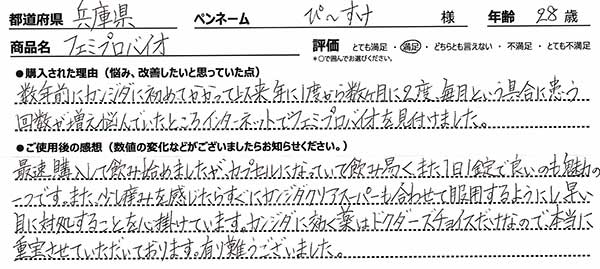 都道府県 兵庫県 ペンネーム ぴ〜すけ 様 年齢 28 歳
商品名 フェミプロバイオ 評価 とても満足 ・ 満足 ・ どちらとも言えない ・ 不満足 ・ とても不満足
*〇で囲んでお選びください。
●購入された理由（悩み、改善したいと思っていた点）
数年前にカンジダに初めてかかって以来年に1度から数ヶ月に2度、毎月という具合に患う
回数が増え悩んでいたところインターネットでフェミプロバイオを見付けました。
●ご使用後の感想（数値の変化などがございましたらお知らせください。）
最速購入して飲み始めましたがカプセルになっていて飲み易くまた1日1錠で良いのも魅力の
一つです。また、少し痒みを感じたらすぐにカンジダクリアスーパーも合わせて服用するようにし、早い
目に対処することを心掛けています。カンジダに効く薬はドクターズチョイスだけなので、本当に
重宝させていただいております。有り難うございました。